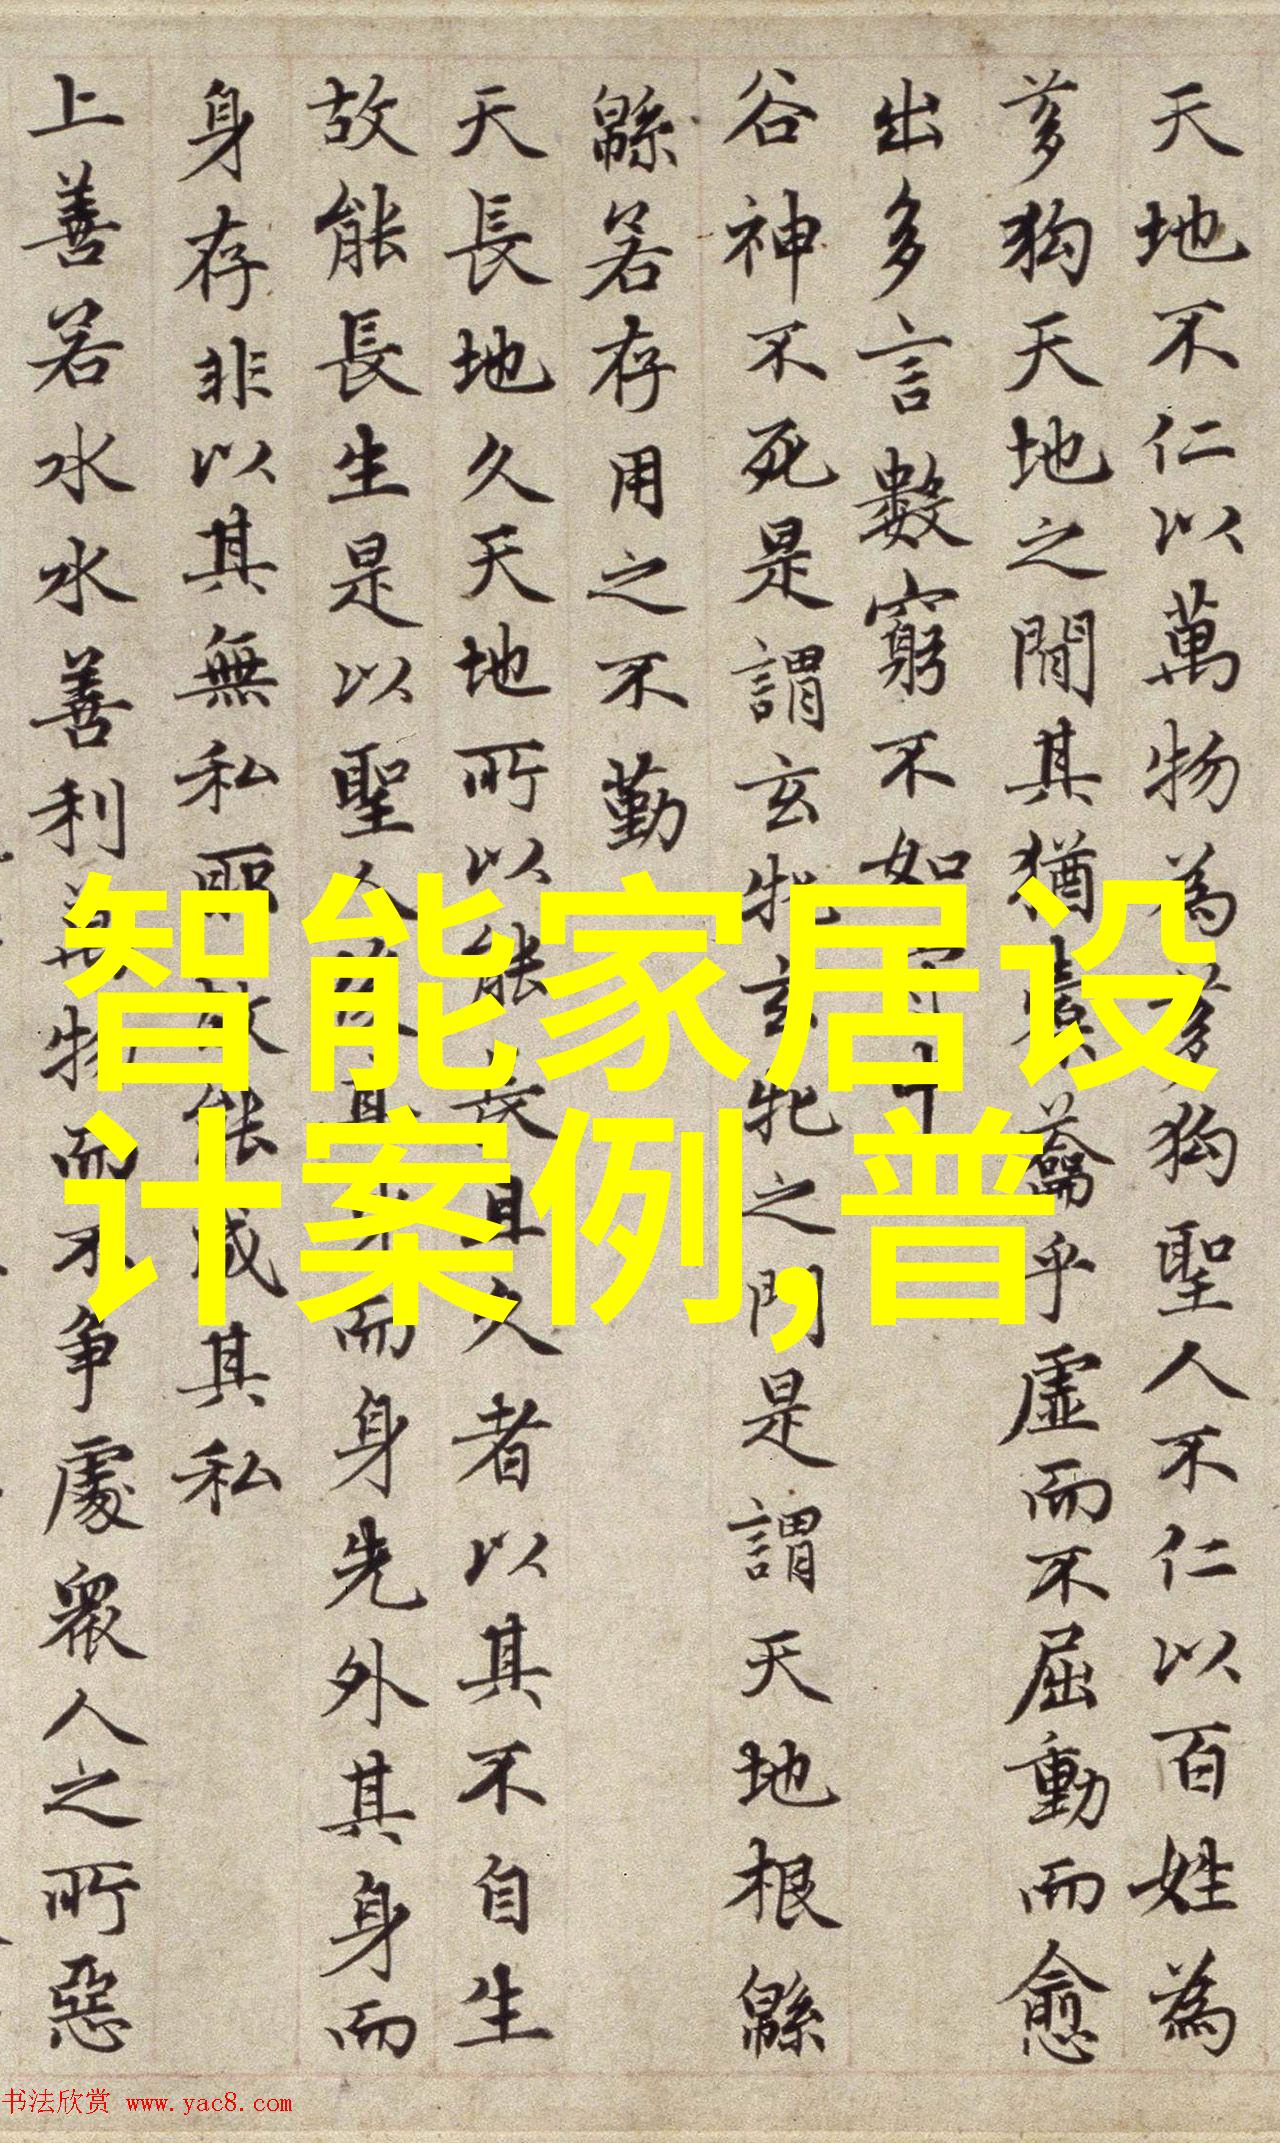 天地不仁以萬物為芻狗聖人不仁以百姓為
芻狗天地之間其猶橐籥乎虛而不屈動而愈
出多言數窮不如守中
谷神不死是謂玄牝玄牝之門是謂天地根緜
緜若存用之不勤
天長地久天地所以能長且久者以其不自生
故能長生是以聖人後其身而身先外其身而
身存非以其無私耶故能成其私
上善若水水善利萬物而不争處衆人之所惡
智能家居设
计案例,普
书法欣赏 www.yac8.com